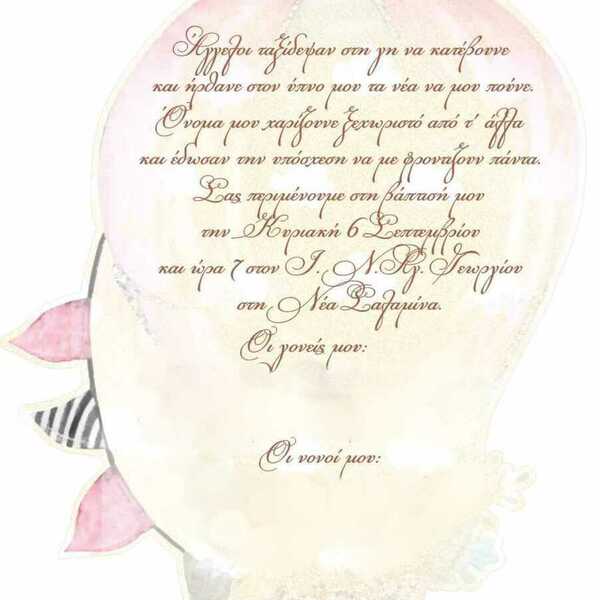 Άγγελοι ταξίδεψαν στη γη να κατέβουνε
και ήρθανε στον ύπνο μου τα νέα να μου πούνε.
Όνομα μου χαρίζουνε ξεχωριστό από τ' άλλα
και έδωσαν την υπόσχεση να με φροντίζουν πάντα.
Σας περιμένουμε στη βάπτισή μου
την Κυριακή 6 Σεπτεμβρίου
και ώρα 7 στον Ι. Ν. Αγ. Γεωργίου
στη Νέα Σαλαμίνα.
Οι γονείς μου:
Οι νονοί μου: